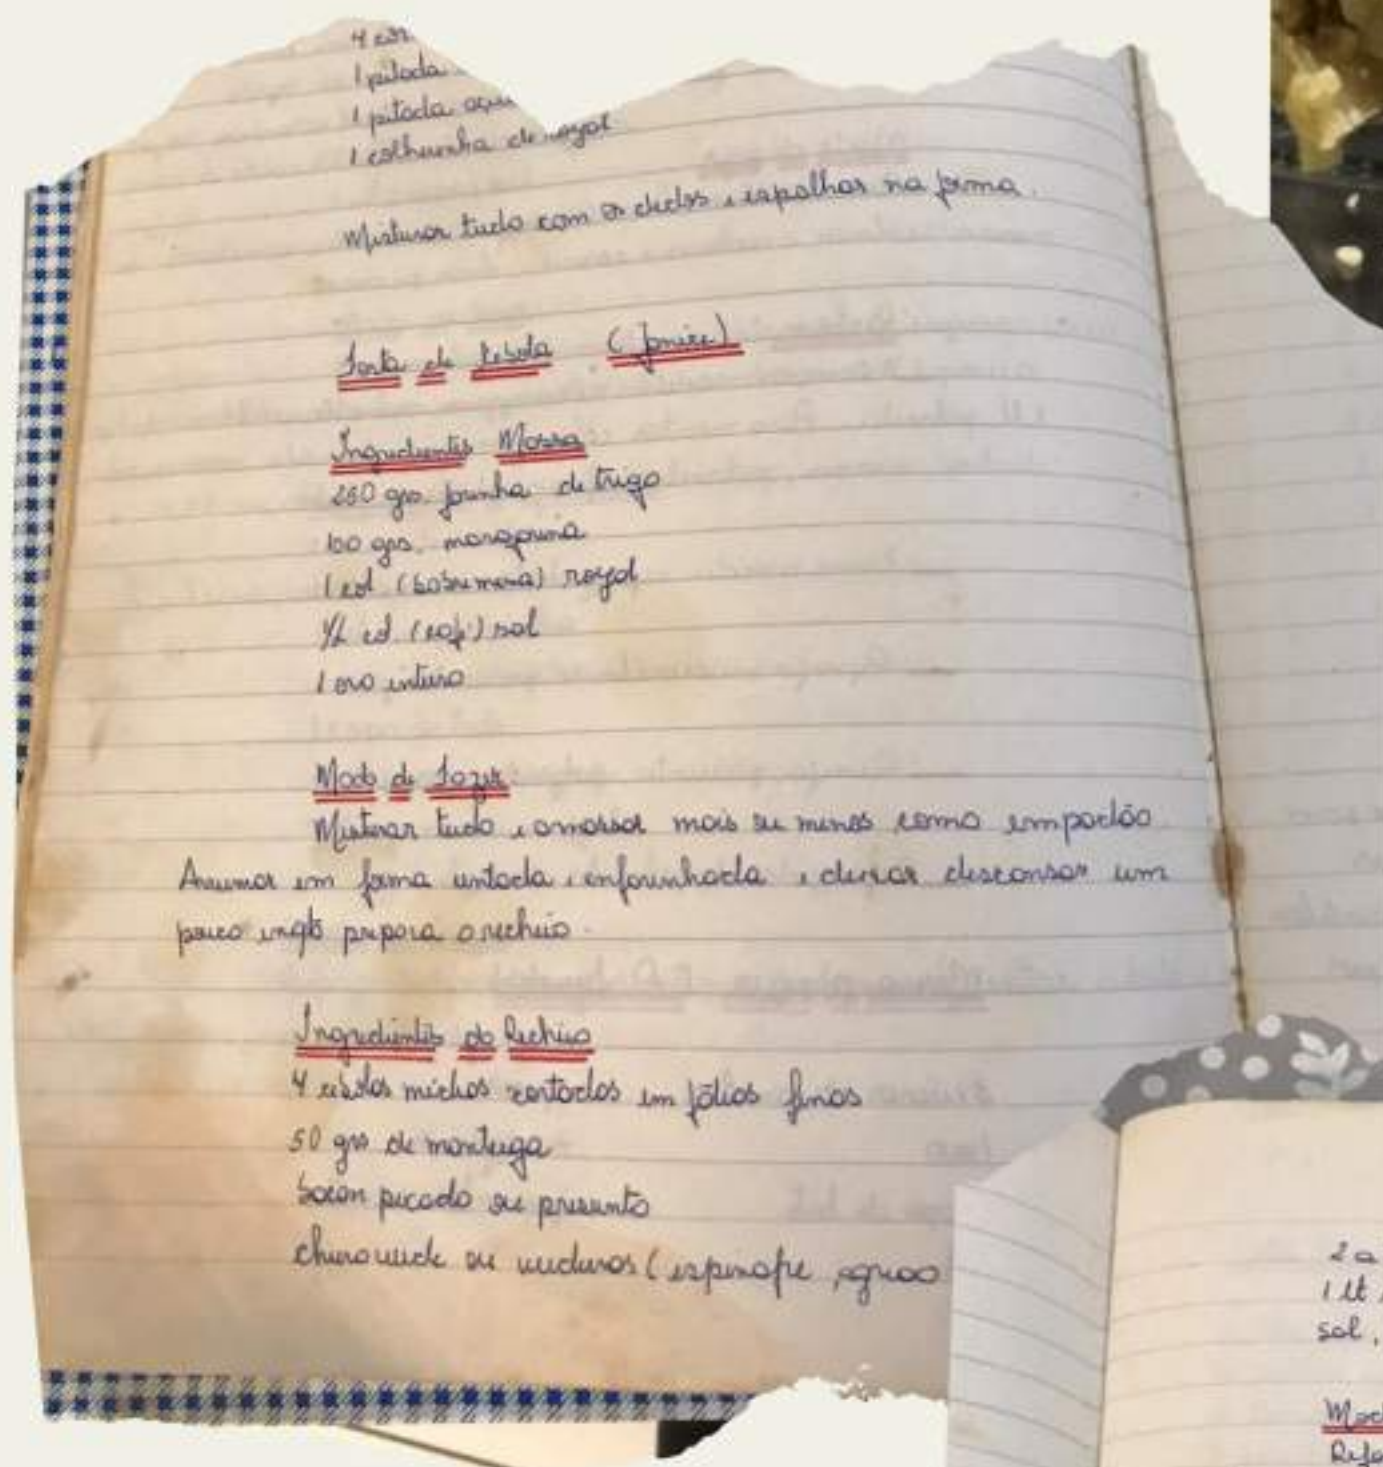 4 col.
1 pitada
1 pitada açu
1 colherinha de royal
Misturar tudo com os dedos e espalhar na forma.
Torta de Cebola (Janice)
Ingredientes Massa
250 grs. farinha de trigo
100 grs. margarina
1 col (sobremesa) royal
1/2 col (café) sal
1 ovo inteiro
Modo de Fazer:
Misturar tudo e amassar mais ou menos como empadão
Arrumar em forma untada e enfarinhada e deixar descansar um
pouco enqto prepara o recheio.
Ingredientes do Recheio
4 cebolas médias cortadas em fatias finas
50 grs de manteiga
bacon picado ou presunto
cheiro verde ou verduras (espinafre, agriao
2 a
1 lt
sal,
Mod
Refo